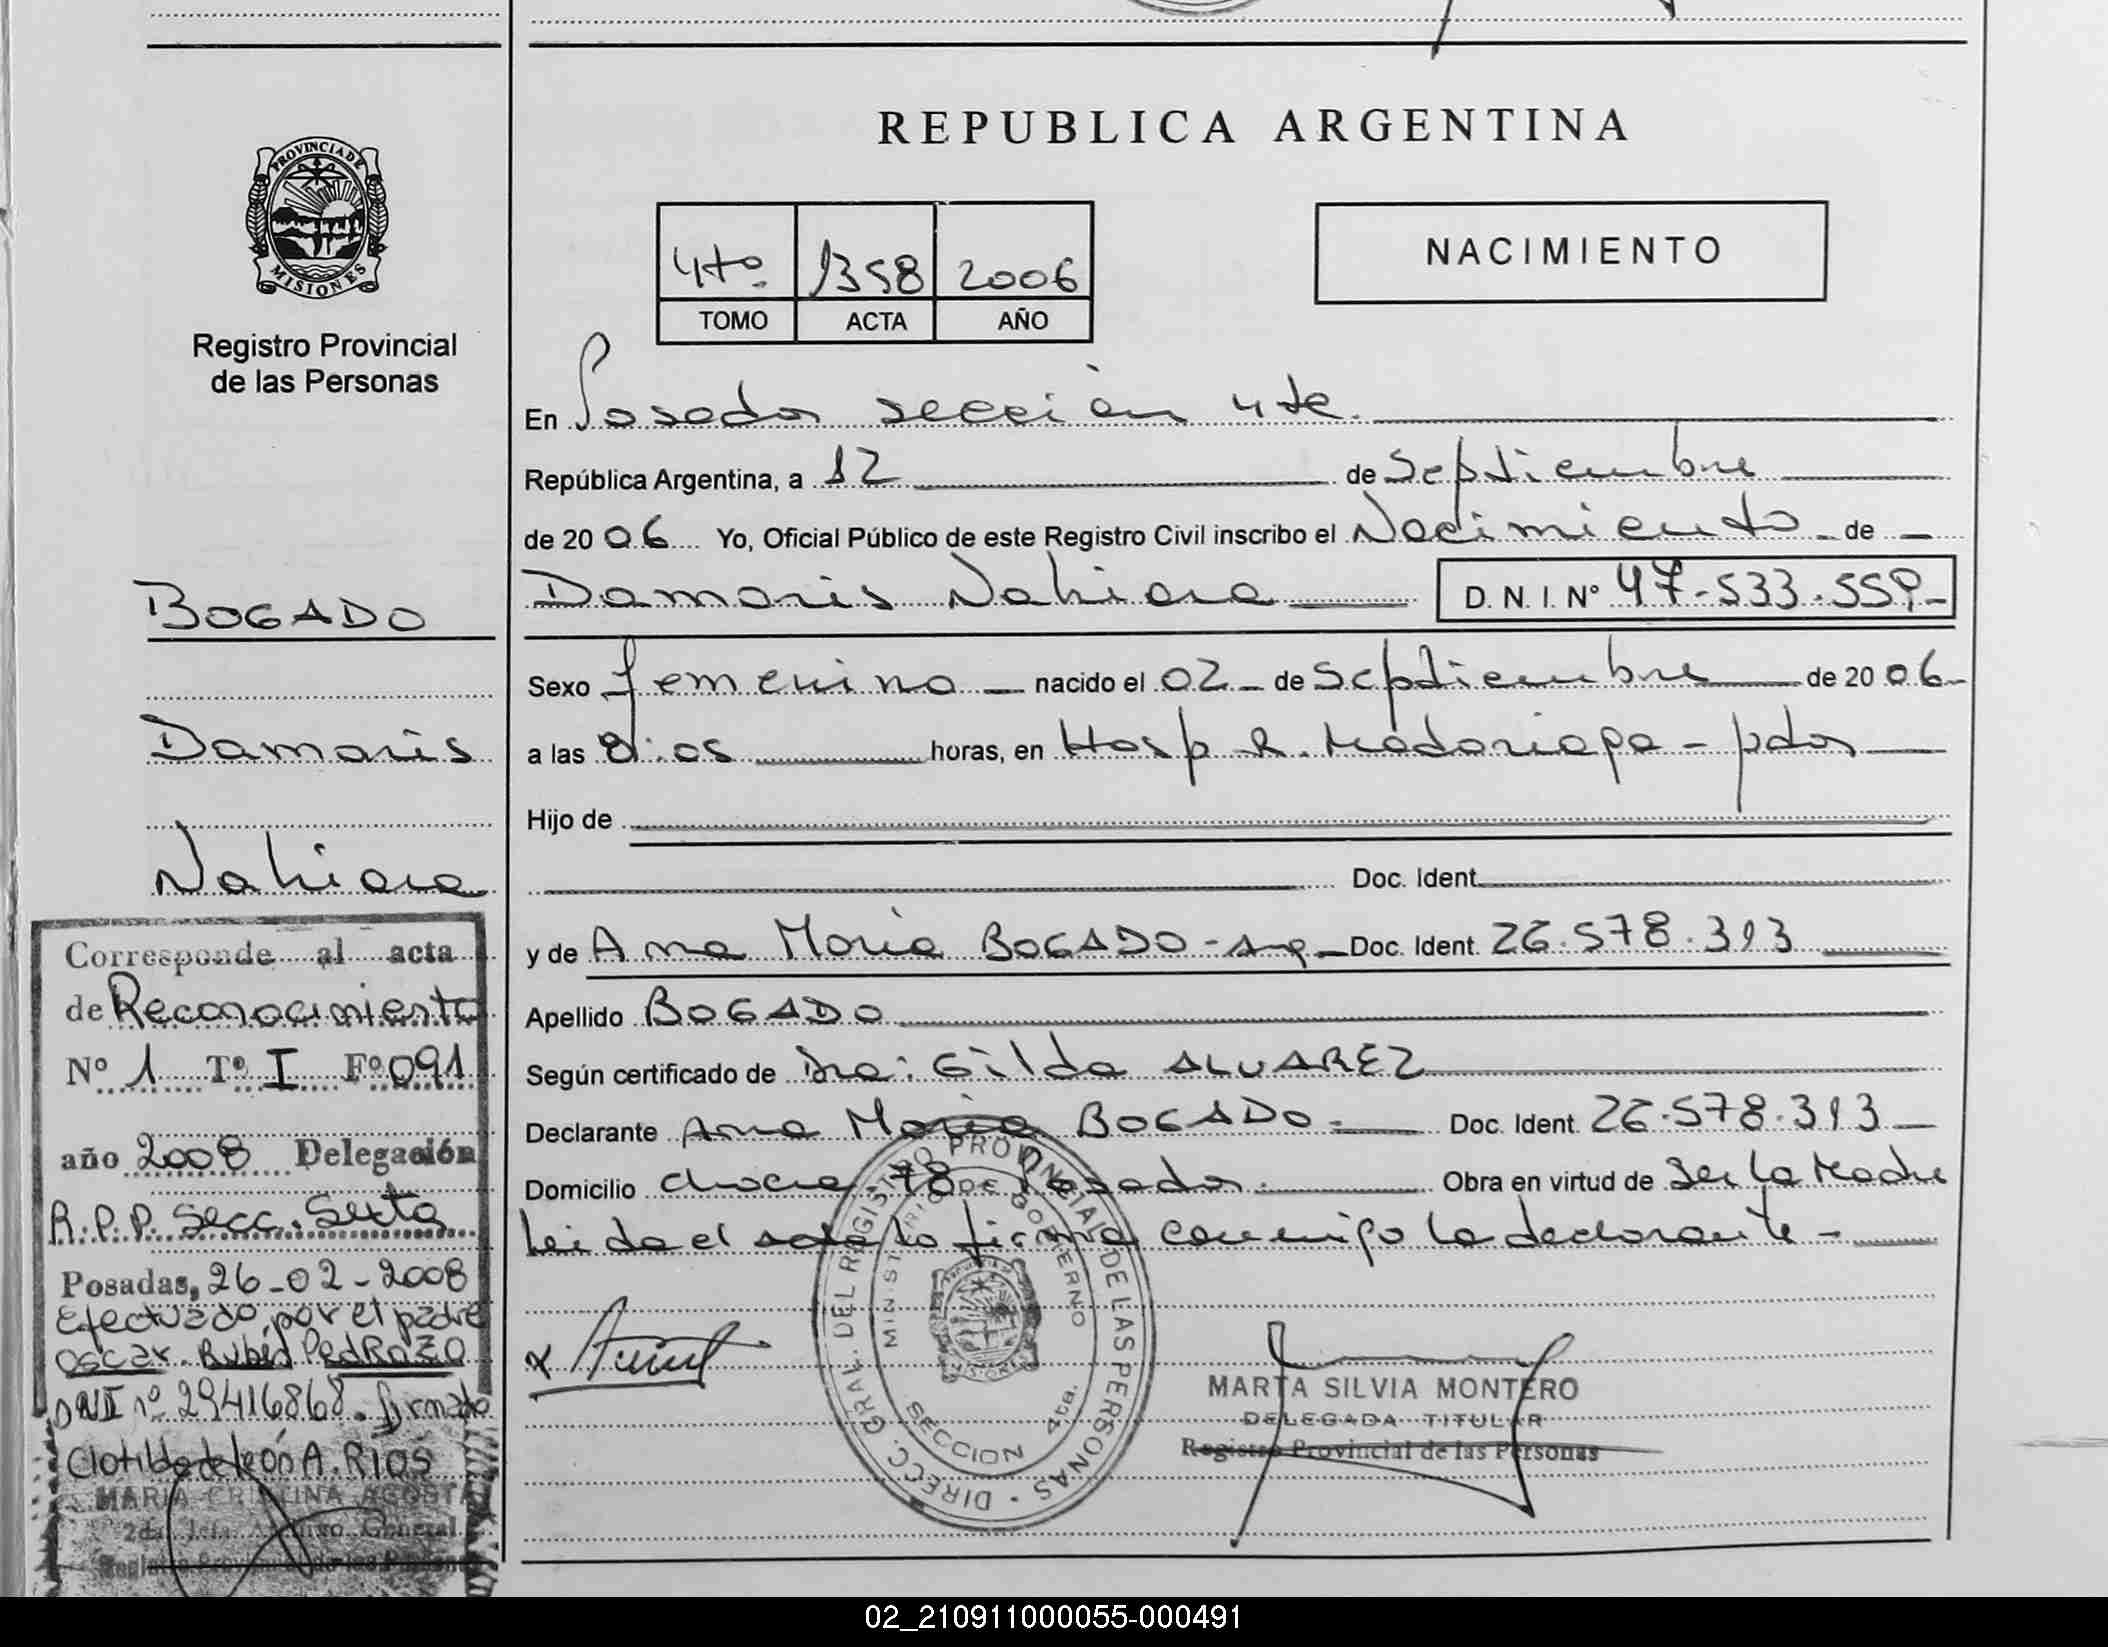 REPUBLICA ARGENTINA
PROVINCIA DE MISIONES
Registro Provincial
de las Personas
4to. 1358 2006
TOMO ACTA AÑO
NACIMIENTO
En Posadas sección 4ta.
República Argentina, a 12 de Septiembre
de 2006 Yo, Oficial Público de este Registro Civil inscribo el Nacimiento de
Damaris Nahiara D. N. I. Nº 47.533.559
Sexo femenino nacido el 02 de Septiembre de 2006
a las 8:05 horas, en Hosp R. Madariaga - pdas
Hijo de
Doc. Ident.
y de Ana Maria BOGADO - arg Doc. Ident. 26.578.313
Apellido BOGADO
Según certificado de Dra: Gilda ALVAREZ
Declarante Ana Maria BOGADO Doc. Ident. 26.578.313
Domicilio chacra 78 Posadas Obra en virtud de Ser la Madre
Leida el acta la firma conmigo la declarante
BOGADO
Damaris
Nahiara
Corresponde al acta
de Reconocimiento
Nº 1 Tº I Fº 091
año 2008 Delegación
R.P.P. Secc. Sexta
Posadas, 26-02-2008
Efectuado por el padre
Oscar Rubén PEDROZO
DNI nº 29416868. firmado
Clotilde de león A. RIOS
MARIA CRISTINA ACOSTA
2da. Jefa Archivo General
Registro Provincial de las Personas
DIRECC. GRAL. DEL REGISTRO PROVINCIAL DE LAS PERSONAS
MINISTERIO DE GOBIERNO
SECCION 4ta.
MARTA SILVIA MONTERO
DELEGADA TITULAR
Registro Provincial de las Personas
02_210911000055-000491